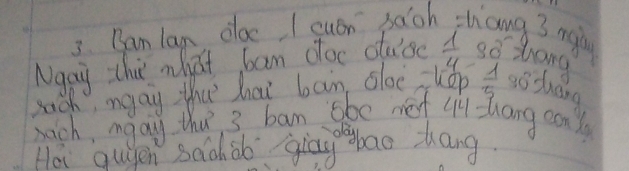 3. Bạn lan đọc 1 cuốn sách trong 3 ngày
Ngày thứ nhất bạn đọc được 1/4 số trang
sách, ngày thứ hai bạn đọc tiếp 1/5 số trang
sách, ngày thứ 3 bạn đọc nốt 44 trang còn lại
Hỏi quyển sách đó dày bao trang.